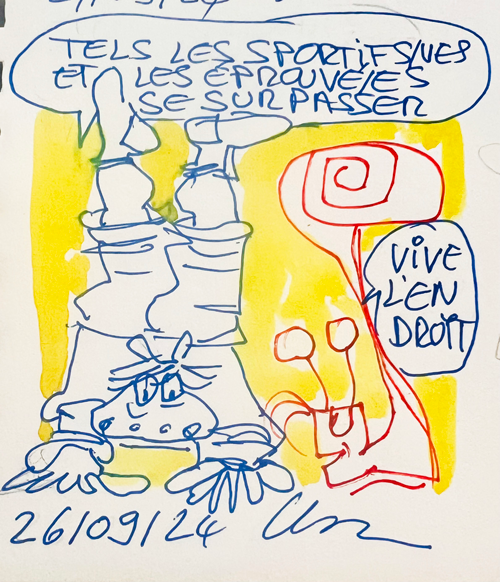 TELS LES SPORTIFS/VES
ET LES ÉPROUVÉ/ES
SE SURPASSER
VIVE
L'EN
DROIT
26/09/24